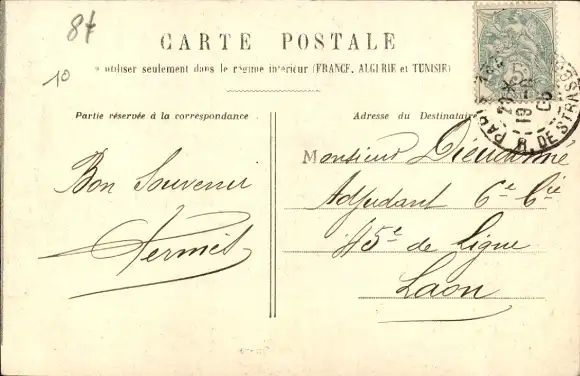 87
10
CARTE POSTALE
à utiliser seulement dans le régime intérieur (FRANCE, ALGERIE et TUNISIE)
Partie réservée à la correspondance
Bon Souvenir
Adresse du Destinataire
Monsieur Dieudonné
Adjudant 6e Cie
45e de Ligne
Laon
5c
PARIS
R. DE STRASBOURG